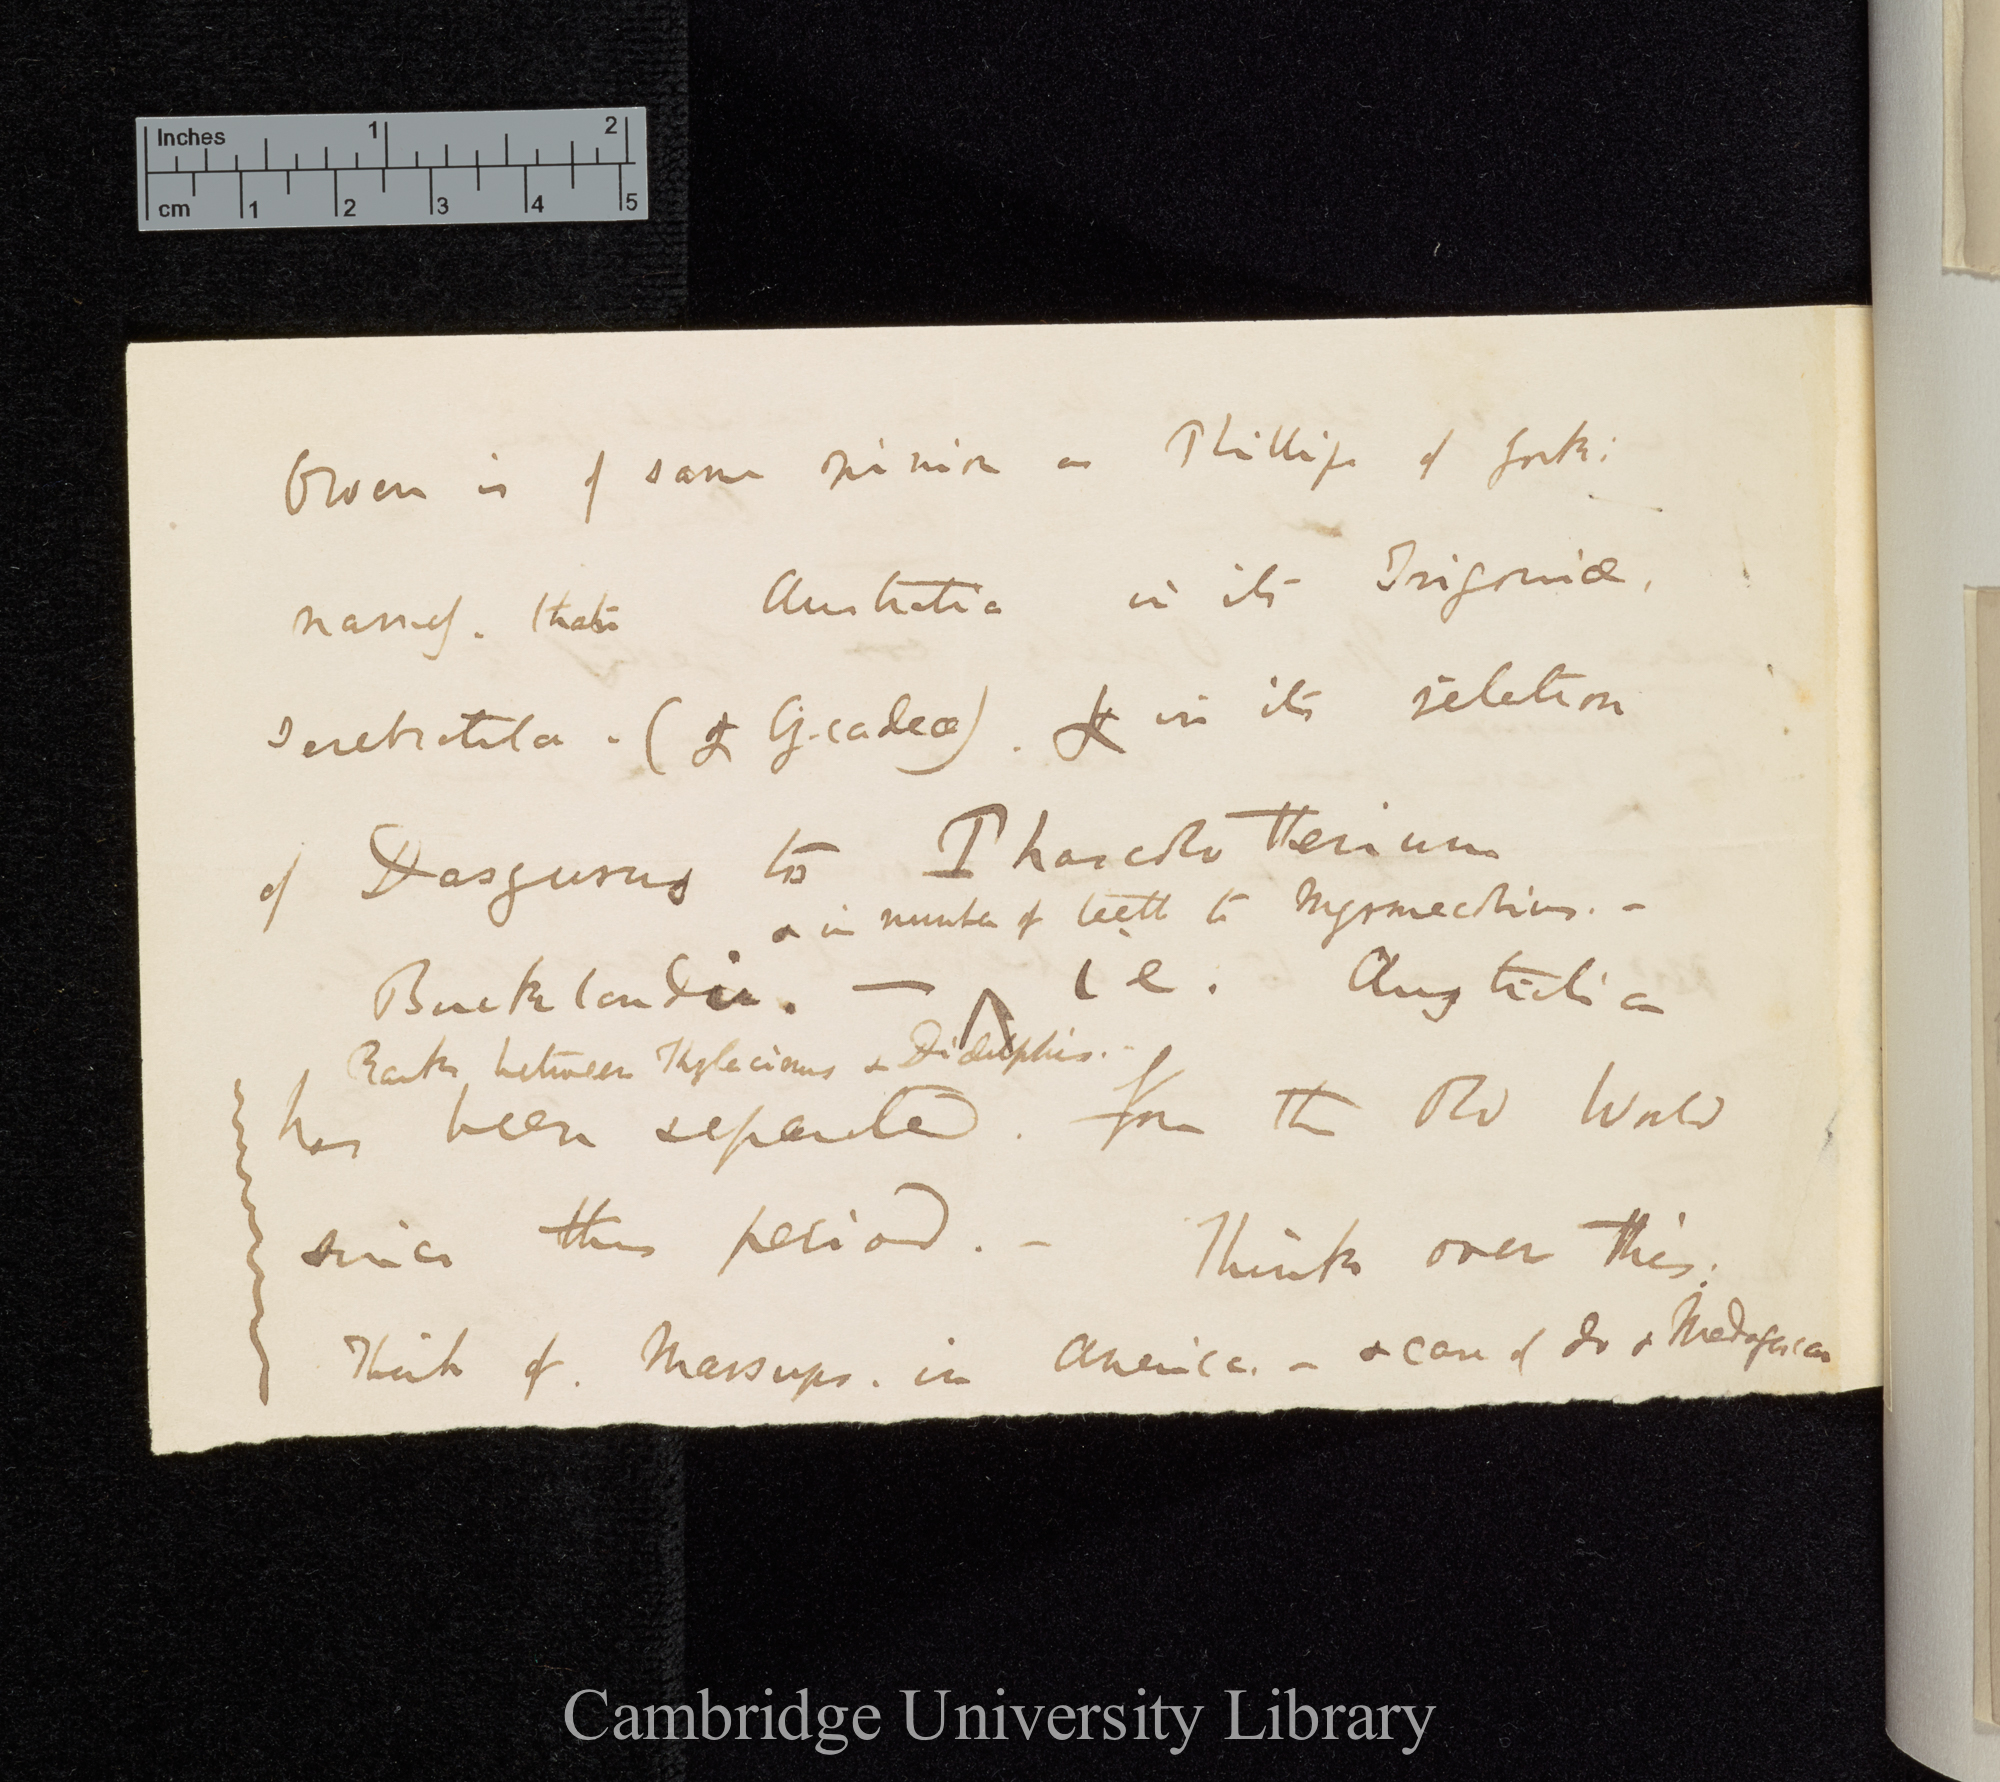 Inches 1 2
cm 1 2 3 4 5
Owen is of same opinion as Phillips of York:
namely. that Australia in its Trigoniæ,
Terebratula - (& Cycadeæ). & in its relation
of Dasyurus to Phascolotherium
& in number of teeth to Myrmecobius. -
Bucklandii. — i.e. Australia
Ranks between Thylacinus & Didelphis. -
has been separated. from the Old World
since this period. - Think over this:
Think of. Marsups. in America. - & case of do & Madagascar
Cambridge University Library